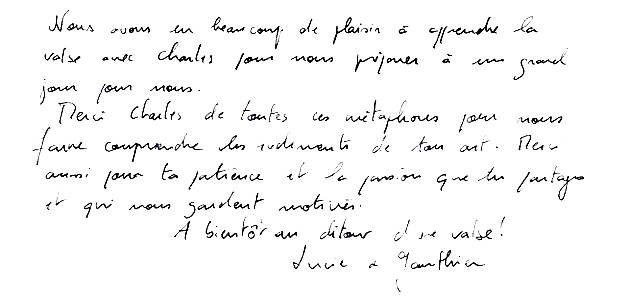 Nous avons eu beaucoup de plaisir à apprendre la
valse avec Charles pour nous préparer à un grand
jour pour nous.
Merci Charles de toutes ces métaphores pour nous
faire comprendre les rudiments de ton art. Merci
aussi pour ta patience et la passion que tu partages
et qui nous gardent motivés.
A bientôt au détour d'une valse!
Lucie & Gauthier